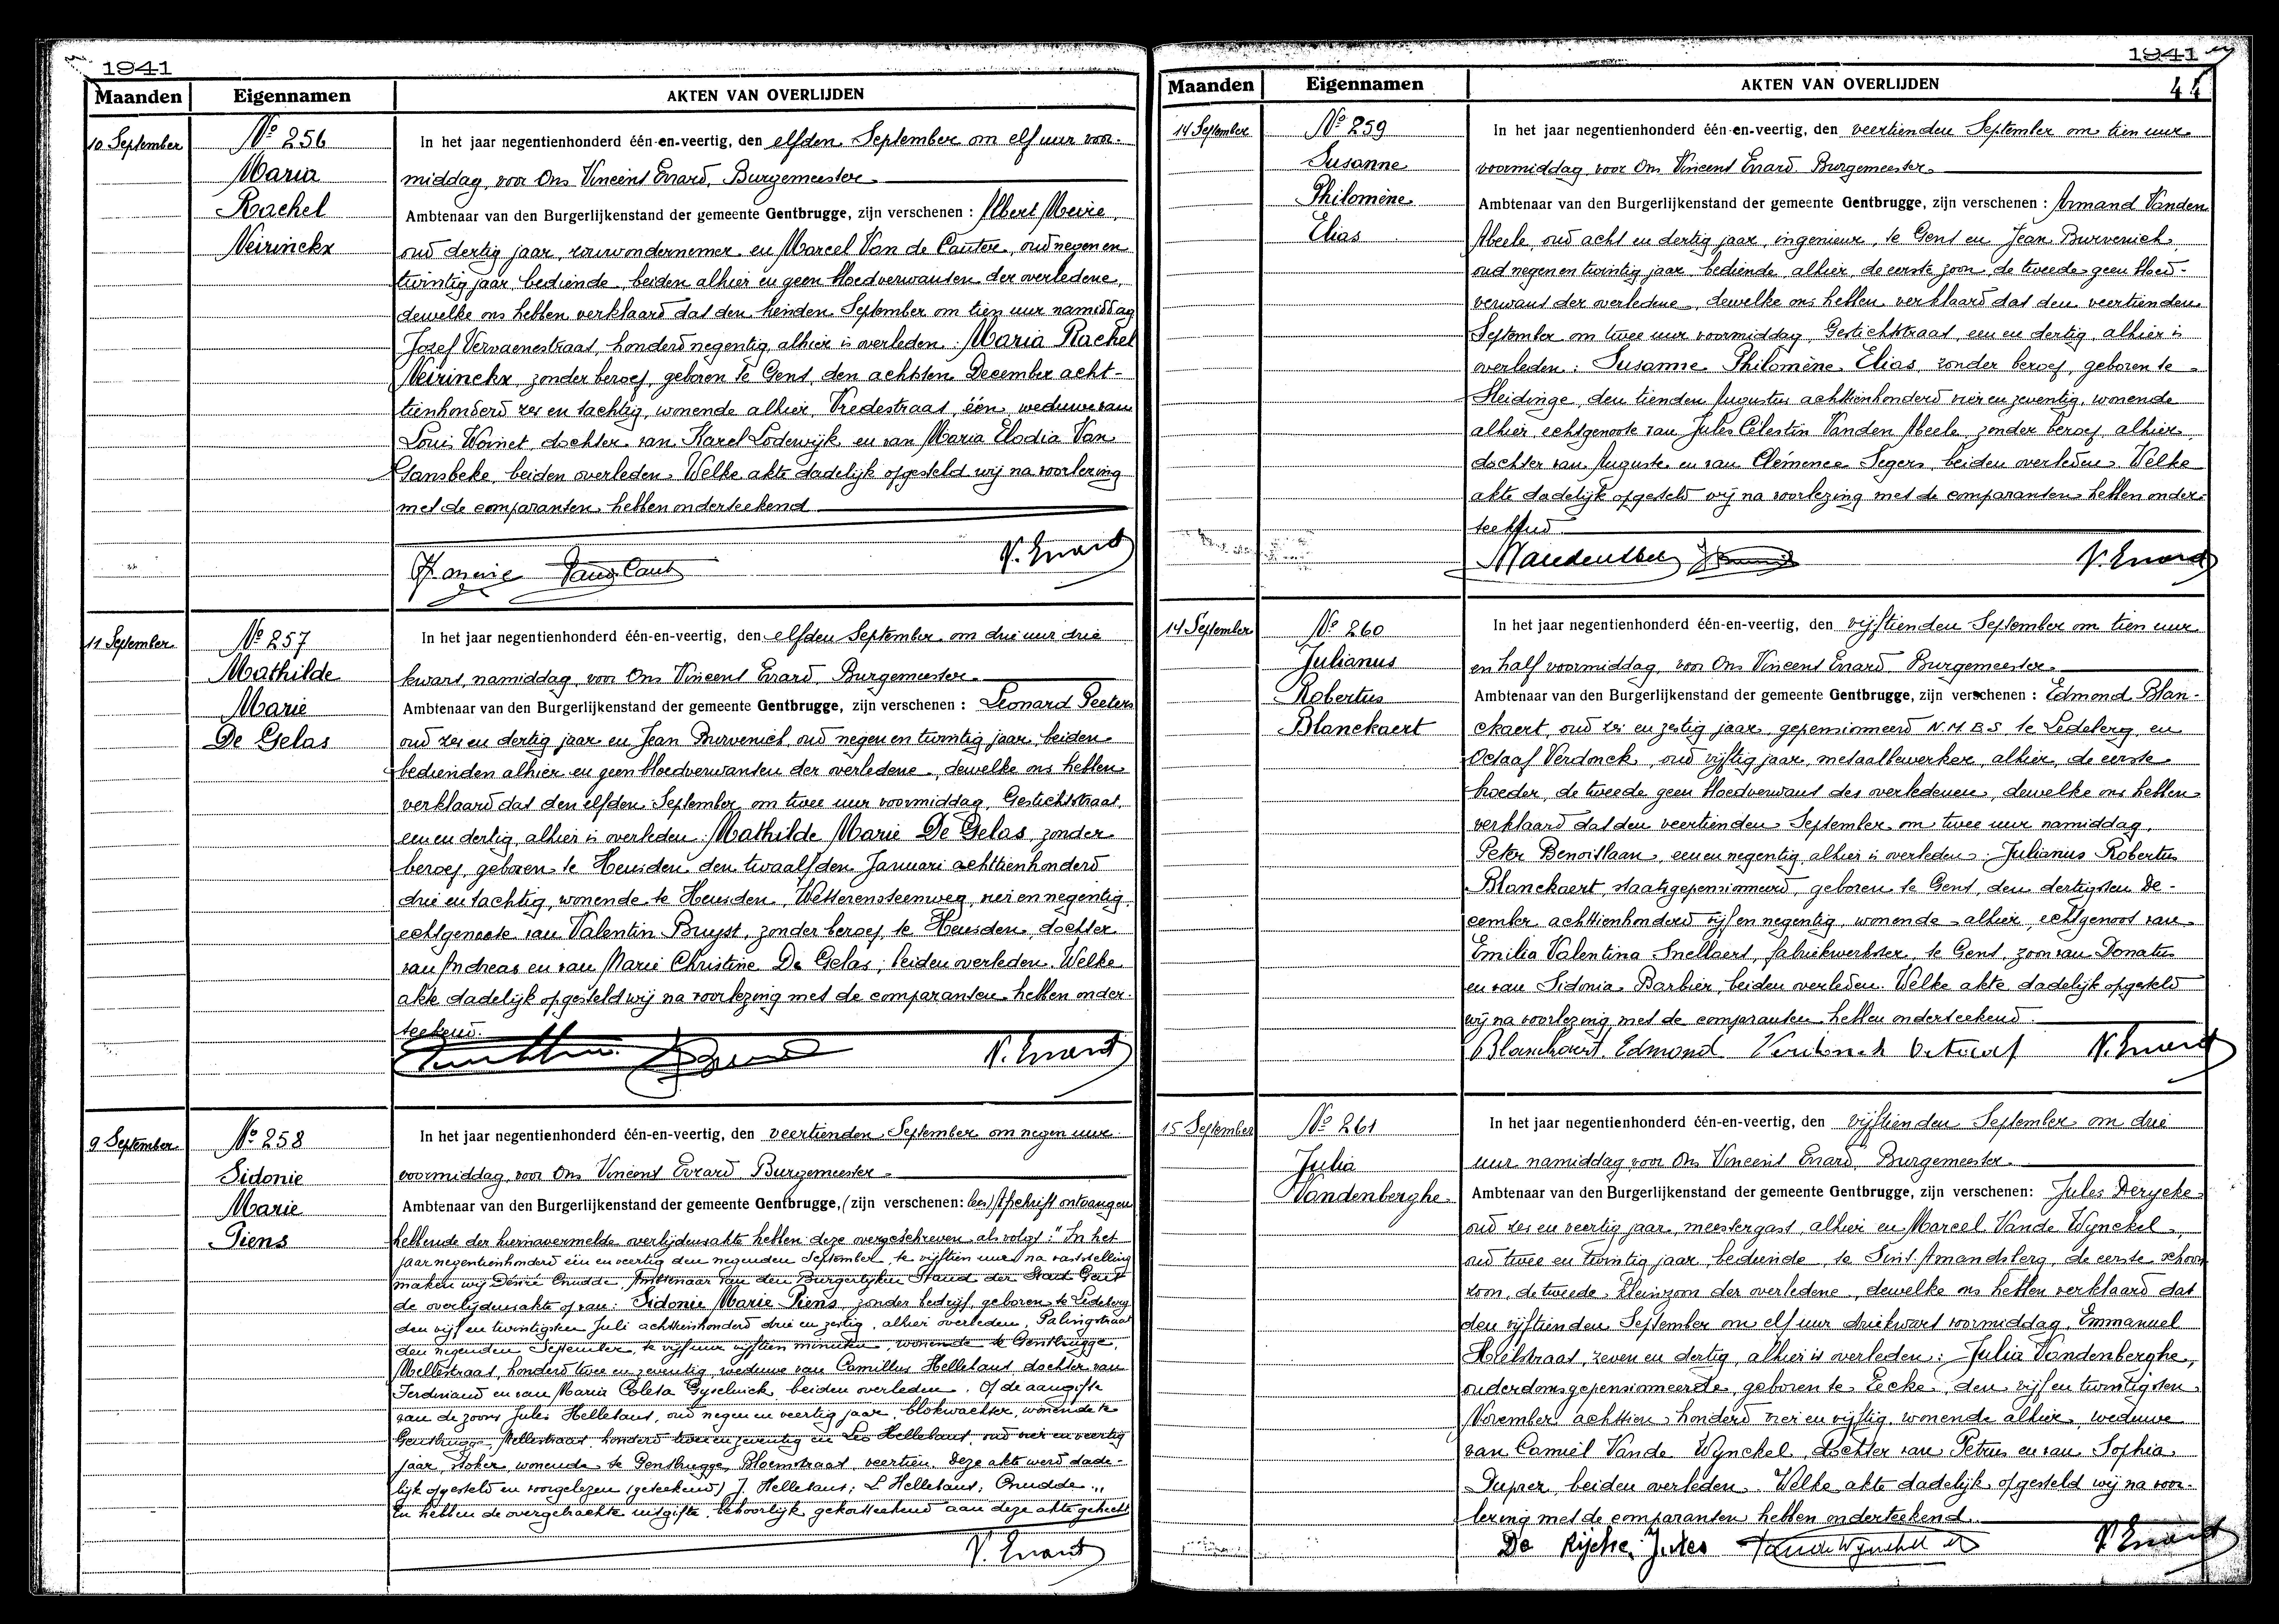 1941
Maanden Eigennamen AKTEN VAN OVERLIJDEN
10 September
Nº 256
Maria
Rachel
Neirinckx
In het jaar negentienhonderd één-en-veertig, den elfden September om elf uur voor-
middag, voor Ons Vincent Evrard, Burgemeester
Ambtenaar van den Burgerlijkenstand der gemeente Gentbrugge, zijn verschenen : Albert
oud dertig jaar, rouwondernemer en Marcel Van de Cauter, oud negen en
twintig jaar, bediende, beiden alhier en geen bloedverwanten der overledene,
dewelke ons hebben verklaard dat den tienden September om tien uur namiddag
Jozef Vervaenestraat, honderd negentig, alhier is overleden : Maria Rachel
Neirinckx, zonder beroep, geboren te Gent, den achtsten December acht-
tienhonderd zes en tachtig, wonende alhier, Vredestraat, één, weduwe van
Louis Woinet, dochter van Karel Lodewijk en van Maria Elodia Van
Gansbeke, beiden overleden. Welke akte dadelijk opgesteld wij na voorlezing
met de comparanten hebben onderteekend
V. Evrard
11 September
Nº 257
Mathilde
Marie
De Gelas
In het jaar negentienhonderd één-en-veertig, den elfden September om drie uur drie
kwart, namiddag, voor Ons Vincent Evrard, Burgemeester
Ambtenaar van den Burgerlijkenstand der gemeente Gentbrugge, zijn verschenen : Leonard Peeters
oud zes en dertig jaar en Jean Burvenich, oud negen en twintig jaar, beiden
bedienden alhier en geen bloedverwanten der overledene, dewelke ons hebben
verklaard dat den elfden September om twee uur voormiddag, Gestichtstraat,
een en dertig, alhier is overleden : Mathilde Marie De Gelas, zonder
beroep, geboren te Heusden, den twaalfden Januari achttienhonderd
drie en tachtig, wonende te Heusden, Wetterensteenweg, vier en negentig,
echtgenoote van Valentin Buyst, zonder beroep, te Heusden, dochter
van Andreas en van Marie Christine De Gelas, beiden overleden. Welke
akte dadelijk opgesteld wij na voorlezing met de comparanten hebben onder-
teekend.
V. Evrard
9 September
Nº 258
Sidonie
Marie
Piens
In het jaar negentienhonderd één-en-veertig, den veertienden September om negen uur
voormiddag, voor Ons Vincent Evrard Burgemeester
Ambtenaar van den Burgerlijkenstand der gemeente Gentbrugge, (zijn verschenen: Afschrift ontvangen
hebbende der hiernavermelde overlijdensakte hebben deze overgeschreven als volgt : " In het
jaar negentienhonderd één en veertig den negenden September, te vijftien uur, na vaststelling
maken wij Désiré Cnudde, Ambtenaar van den Burgerlijken Stand der Stad Gent
de overlijdensakte op van : Sidonie Marie Piens, zonder bedrijf, geboren te Ledeberg
den vijf en twintigsten Juli achttienhonderd drie en zestig, alhier overleden, Palingstraat
den negenden September, te vijf uur vijftien minuten, wonende te Gentbrugge,
Mellestraat, honderd twee en zeventig, weduwe van Camillus Hellebaut, dochter van
Ferdinand en van Maria Coleta Gyselinck, beiden overleden. Op de aangifte
van de zoons Jules Hellebaut, oud negen en veertig jaar, blokwachter, wonende te
Gentbrugge, Mellestraat, honderd twee en zeventig en Leo Hellebaut, oud vier en veertig
jaar, stoker, wonende te Gentbrugge, Bloemstraat, veertien. Deze akte werd dade-
lijk opgesteld en voorgelezen (geteekend) J. Hellebaut; L Hellebaut; Cnudde.„
En hebben de overgebrachte uitgifte, behoorlijk gekantteekend aan deze akte gehecht
V. Evrard
1941
44
Maanden Eigennamen AKTEN VAN OVERLIJDEN
14 September
Nº 259
Susanne
Philomène
Elias
In het jaar negentienhonderd één-en-veertig, den veertienden September om tien uur
voormiddag, voor Ons Vincent Evrard Burgemeester
Ambtenaar van den Burgerlijkenstand der gemeente Gentbrugge, zijn verschenen : Armand Vanden
Abeele, oud acht en dertig jaar, ingenieur, te Gent en Jean Burvenich,
oud negen en twintig jaar, bediende, alhier, de eerste zoon, de tweede geen bloed-
verwant der overledene, dewelke ons hebben verklaard dat den veertienden
September om twee uur voormiddag, Gestichtstraat, een en dertig, alhier is
overleden : Susanne Philomène Elias, zonder beroep, geboren te
Sleidinge, den tienden Augustus achttienhonderd vier en zeventig, wonende
alhier, echtgenoote van Jules Célestin Vanden Abeele, zonder beroep, alhier,
dochter van Auguste en van Clémence Segers, beiden overleden. Welke
akte dadelijk opgesteld wij na voorlezing met de comparanten hebben onder-
teekend
V. Evrard
14 September
Nº 260
Julianus
Robertus
Blanckaert
In het jaar negentienhonderd één-en-veertig, den vijftienden September om tien uur
en half voormiddag, voor Ons Vincent Evrard, Burgemeester
Ambtenaar van den Burgerlijkenstand der gemeente Gentbrugge, zijn verschenen : Edmond Blan-
ckaert, oud zes en zestig jaar, gepensionneerd N.M.B.S te Ledeberg, en
Octaaf Verdonck, oud vijftig jaar, metaalbewerker, alhier, de eerste
broeder, de tweede geen bloedverwant des overledenen, dewelke ons hebben
verklaard dat den veertienden September om twee uur namiddag,
Peter Benoitlaan, een en negentig, alhier is overleden : Julianus Robertus
Blanckaert, staatsgepensionneerd, geboren te Gent, den dertigsten De-
cember achttienhonderd vijf en negentig, wonende alhier, echtgenoot van
Emilia Valentina Snellaert, fabriekwerkster, te Gent, zoon van Donatus
en van Sidonia Barbier, beiden overleden. Welke akte dadelijk opgesteld
wij na voorlezing met de comparanten hebben onderteekend.
Blanckaert Edmond Verdonck Octaaf V. Evrard
15 September
Nº 261
Julia
Vandenberghe
In het jaar negentienhonderd één-en-veertig, den vijftienden September om drie
uur namiddag voor Ons Vincent Evrard, Burgemeester
Ambtenaar van den Burgerlijkenstand der gemeente Gentbrugge, zijn verschenen: Jules Derycke
oud zes en veertig jaar, meestergast, alhier en Marcel Vande Wynckel,
oud twee en twintig jaar, bediende, te Sint Amandsberg, de eerste schoon
zoon, de tweede kleinzoon der overledene, dewelke ons hebben verklaard dat
den vijftienden September om elf uur driekwart voormiddag, Emmanuel
Hielstraat, zeven en dertig, alhier is overleden : Julia Vandenberghe,
ouderdomsgepensionneerde, geboren te Eecke, den vijf en twintigsten
November achttien honderd vier en vijftig, wonende alhier, weduwe
van Camiel Vande Wynckel, dochter van Petrus en van Sophia
Duprez, beiden overleden. Welke akte dadelijk opgesteld wij na voor-
lezing met de comparanten hebben onderteekend.
De Rijcke Jules Vande Wynckel V. Evrard